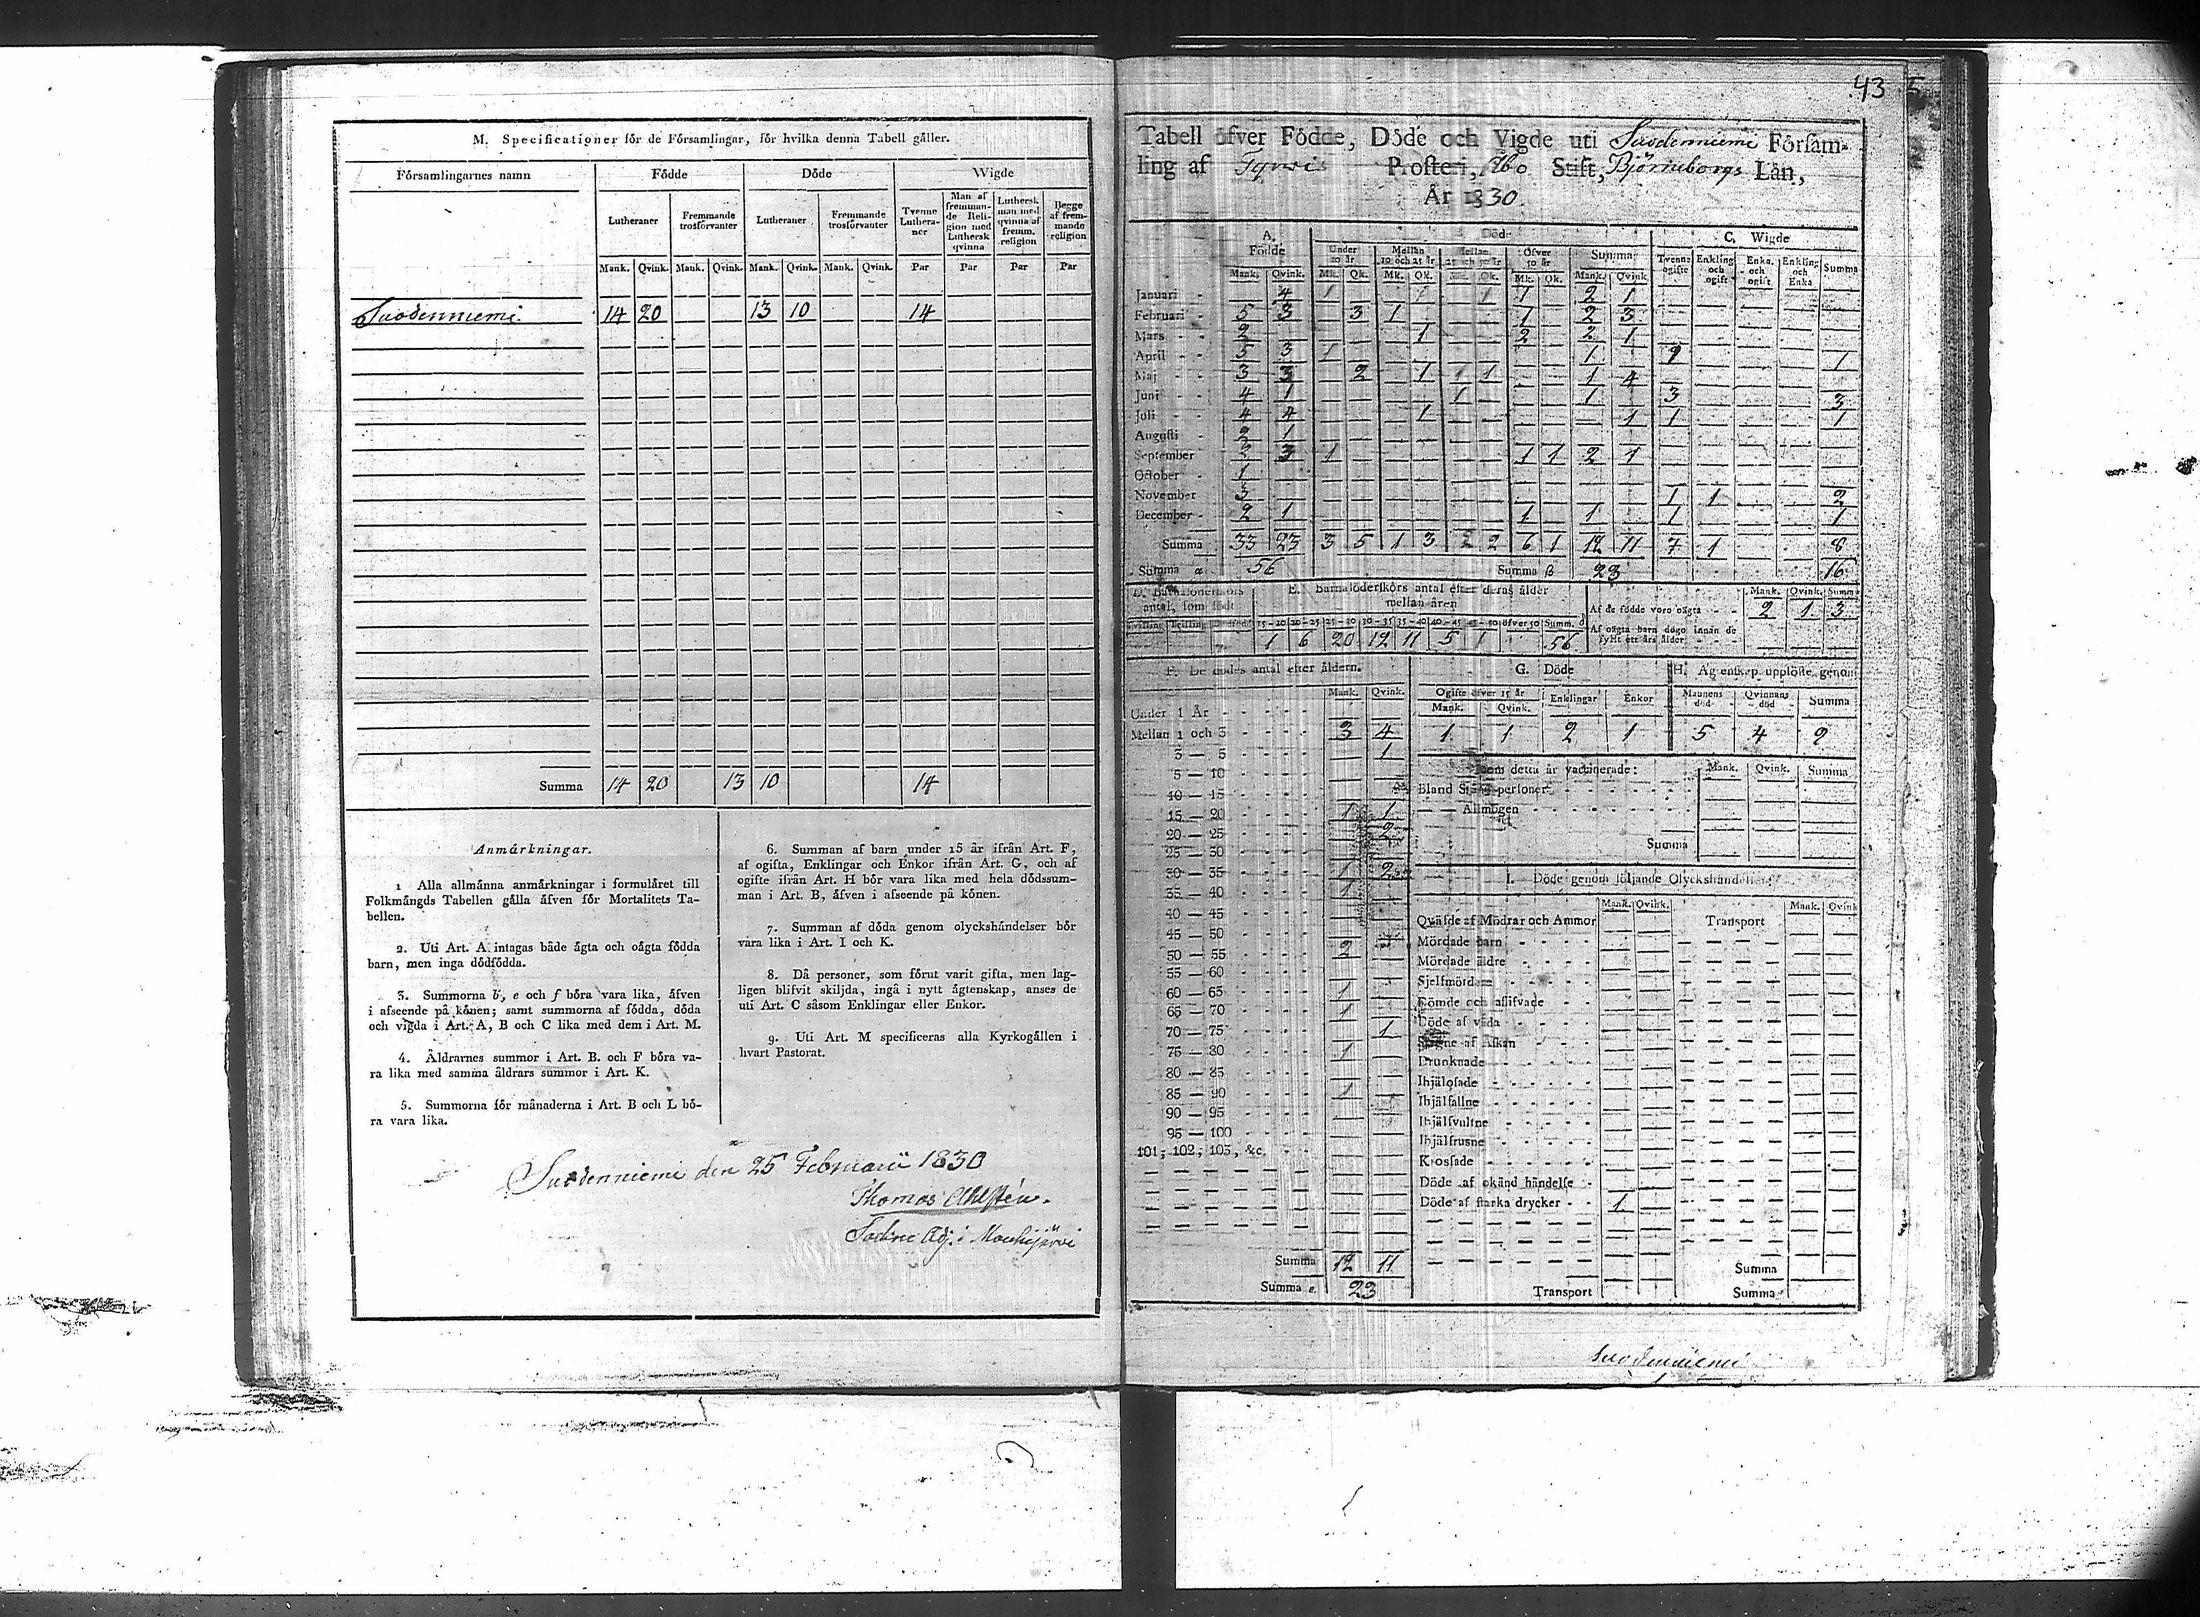 M. Specificationer för de Församlingar, för hvilka denna Tabell gäller.
Församlingarnes namn Födde Döde Wigde
Lutheraner Fremmande trosförvanter Lutheraner Fremmande trosförvanter Tvenne Lutheraner Man af fremmande Religion med Luthersk qvinna Luthersk man med qvinna af fremm. religion Begge af fremmande religion
Mank. Qvink. Mank. Qvink. Mank. Qvink. Mank. Qvink. Par Par Par Par
Suodenniemi 14 20 13 10 14
Summa 14 20 13 10 14
Anmärkningar.
1 Alla allmänna anmärkningar i formuläret till
Folkmängds Tabellen gälla äfven för Mortalitets Ta-
bellen.
2. Uti Art. A intagas både ägta och oägta födda
barn, men inga dödfödda.
3. Summorna b, e och f böra vara lika, äfven
i afseende på könen; samt summorna af födda, döda
och vigda i Art. A, B och C lika med dem i Art. M.
4. Åldrarnes summor i Art. B. och F böra va-
ra lika med samma åldrars summor i Art. K.
5. Summorna för månaderna i Art. B och L bö-
ra vara lika.
6. Summan af barn under 15 år ifrån Art. F,
af ogifta, Enklingar och Enkor ifrån Art. G, och af
ogifte ifrån Art. H bör vara lika med hela dödssum-
man i Art. B, äfven i afseende på könen.
7. Summan af döda genom olyckshändelser bör
vara lika i Art. I och K.
8. Då personer, som förut varit gifta, men lag-
ligen blifvit skiljda, ingå i nytt ägtenskap, anses de
uti Art. C såsom Enklingar eller Enkor.
9. Uti Art. M specificeras alla Kyrkogällen i
hvart Pastorat.
Suodenniemi den 25 Februarii 1830
Thomas Ahlstén.
Adj. i Mouhijärvi
43
Tabell öfver Födde, Döde och Vigde uti Suodenniemi Församling
af Tyrvis Prosteri, Åbo Stift, Björneborgs Län,
År 1830
A. Födde Döde C. Wigde
Under 10 år Mellan 10 och 25 år Mellan 25 och 50 år Öfver 50 år Summa Tvenne ogifte Enkling och ogift Enka och ogift Enkling och Enka Summa
Mank. Qvink. Mk. Qk. Mk. Qk. Mk. Qk. Mk. Qk. Mank. Qvink.
Januari 4 1 1 1 2 1
Februari 5 3 3 1 1 2 3
Mars 2 1 2 2 1
April 5 3 1 1 1
Maj 3 3 2 1 1 1 4
Juni 4 1 1 1 3 3
Juli 4 4 1 1 1 1
Augusti 2 1
September 2 3 1 1 1 2 1
October 1
November 3 1 1 2
December 2 1 1 1 1 1
Summa 33 23 3 5 1 3 2 2 6 1 12 11 7 1 8
Summa a 56 Summa β 23 16
E. Barnaföderskors antal efter deras ålder
mellan åren
15-20 20-25 25-30 30-35 35-40 40-45 45-50 öfver 50 Summ.
1 6 20 12 11 5 1 56
Mank. Qvink. Summa
Af de födde voro oägta 2 1 3
Af oägta barn dögo innan de
fyllt ett års ålder
F. De dödes antal efter åldern.
Mank. Qvink.
Under 1 År
Mellan 1 och 3 3 4
3 — 5 1
5 — 10
10 — 15
15 — 20 1 1
20 — 25 2
25 — 30
30 — 35 1 2
35 — 40 1
40 — 45
45 — 50
50 — 55 2
55 — 60
60 — 65 1
65 — 70 1
70 — 75 1
75 — 80 1
80 — 85
85 — 90 1
90 — 95
95 — 100
101, 102, 103, &c.
Summa 12 11
Summa e. 23
G. Döde
Ogifte öfver 15 år Enklingar Enkor
Mank. Qvink.
1 1 2 1
H. Ägtenskap upplöste genom
Mannens död Qvinnans död Summa
5 4 9
Som detta år vaccinerade: Mank. Qvink. Summa
Bland Stånds personer
Allmogen
Summa
I. Döde genom följande Olyckshändelser:
Mank. Qvink. Mank. Qvink
Qväfde af Mödrar och Ammor Transport
Mördade barn
Mördade äldre
Sjelfmördare
Dömde och aflifvade
Döde af våda
Slagne af Åskan
Drunknade
Ihjälosade
Ihjälfallne
Ihjälsvultne
Ihjälfrusne
Krossade
Döde af okänd händelse
Döde af starka drycker 1
Summa
Transport Summa
Suodenniemi